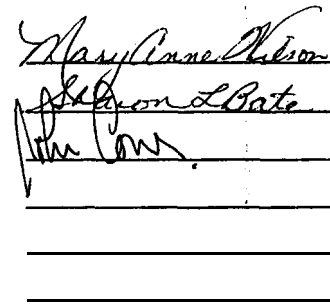 Mary Anne Wilson
Sharon L Bate
John